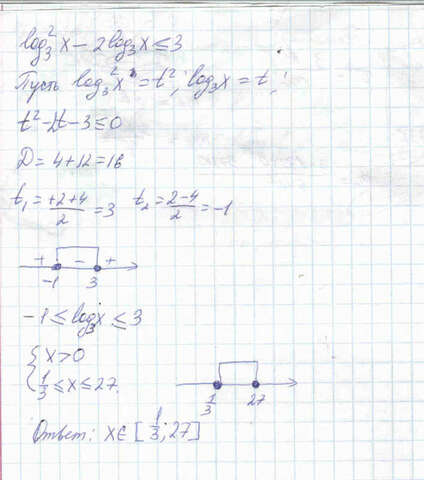 log₃²x − 2log₃x ≤ 3
Пусть log₃²x = t²; log₃x = t;
t² − 2t − 3 ≤ 0
D = 4 + 12 = 16
t₁ = (+2+4)/2 = 3 t₂ = (2−4)/2 = −1
+ − +
−1 3
−1 ≤ log₃x ≤ 3
{ x > 0
{ 1/3 ≤ x ≤ 27.
1/3 27
Ответ: x∈[1/3; 27]